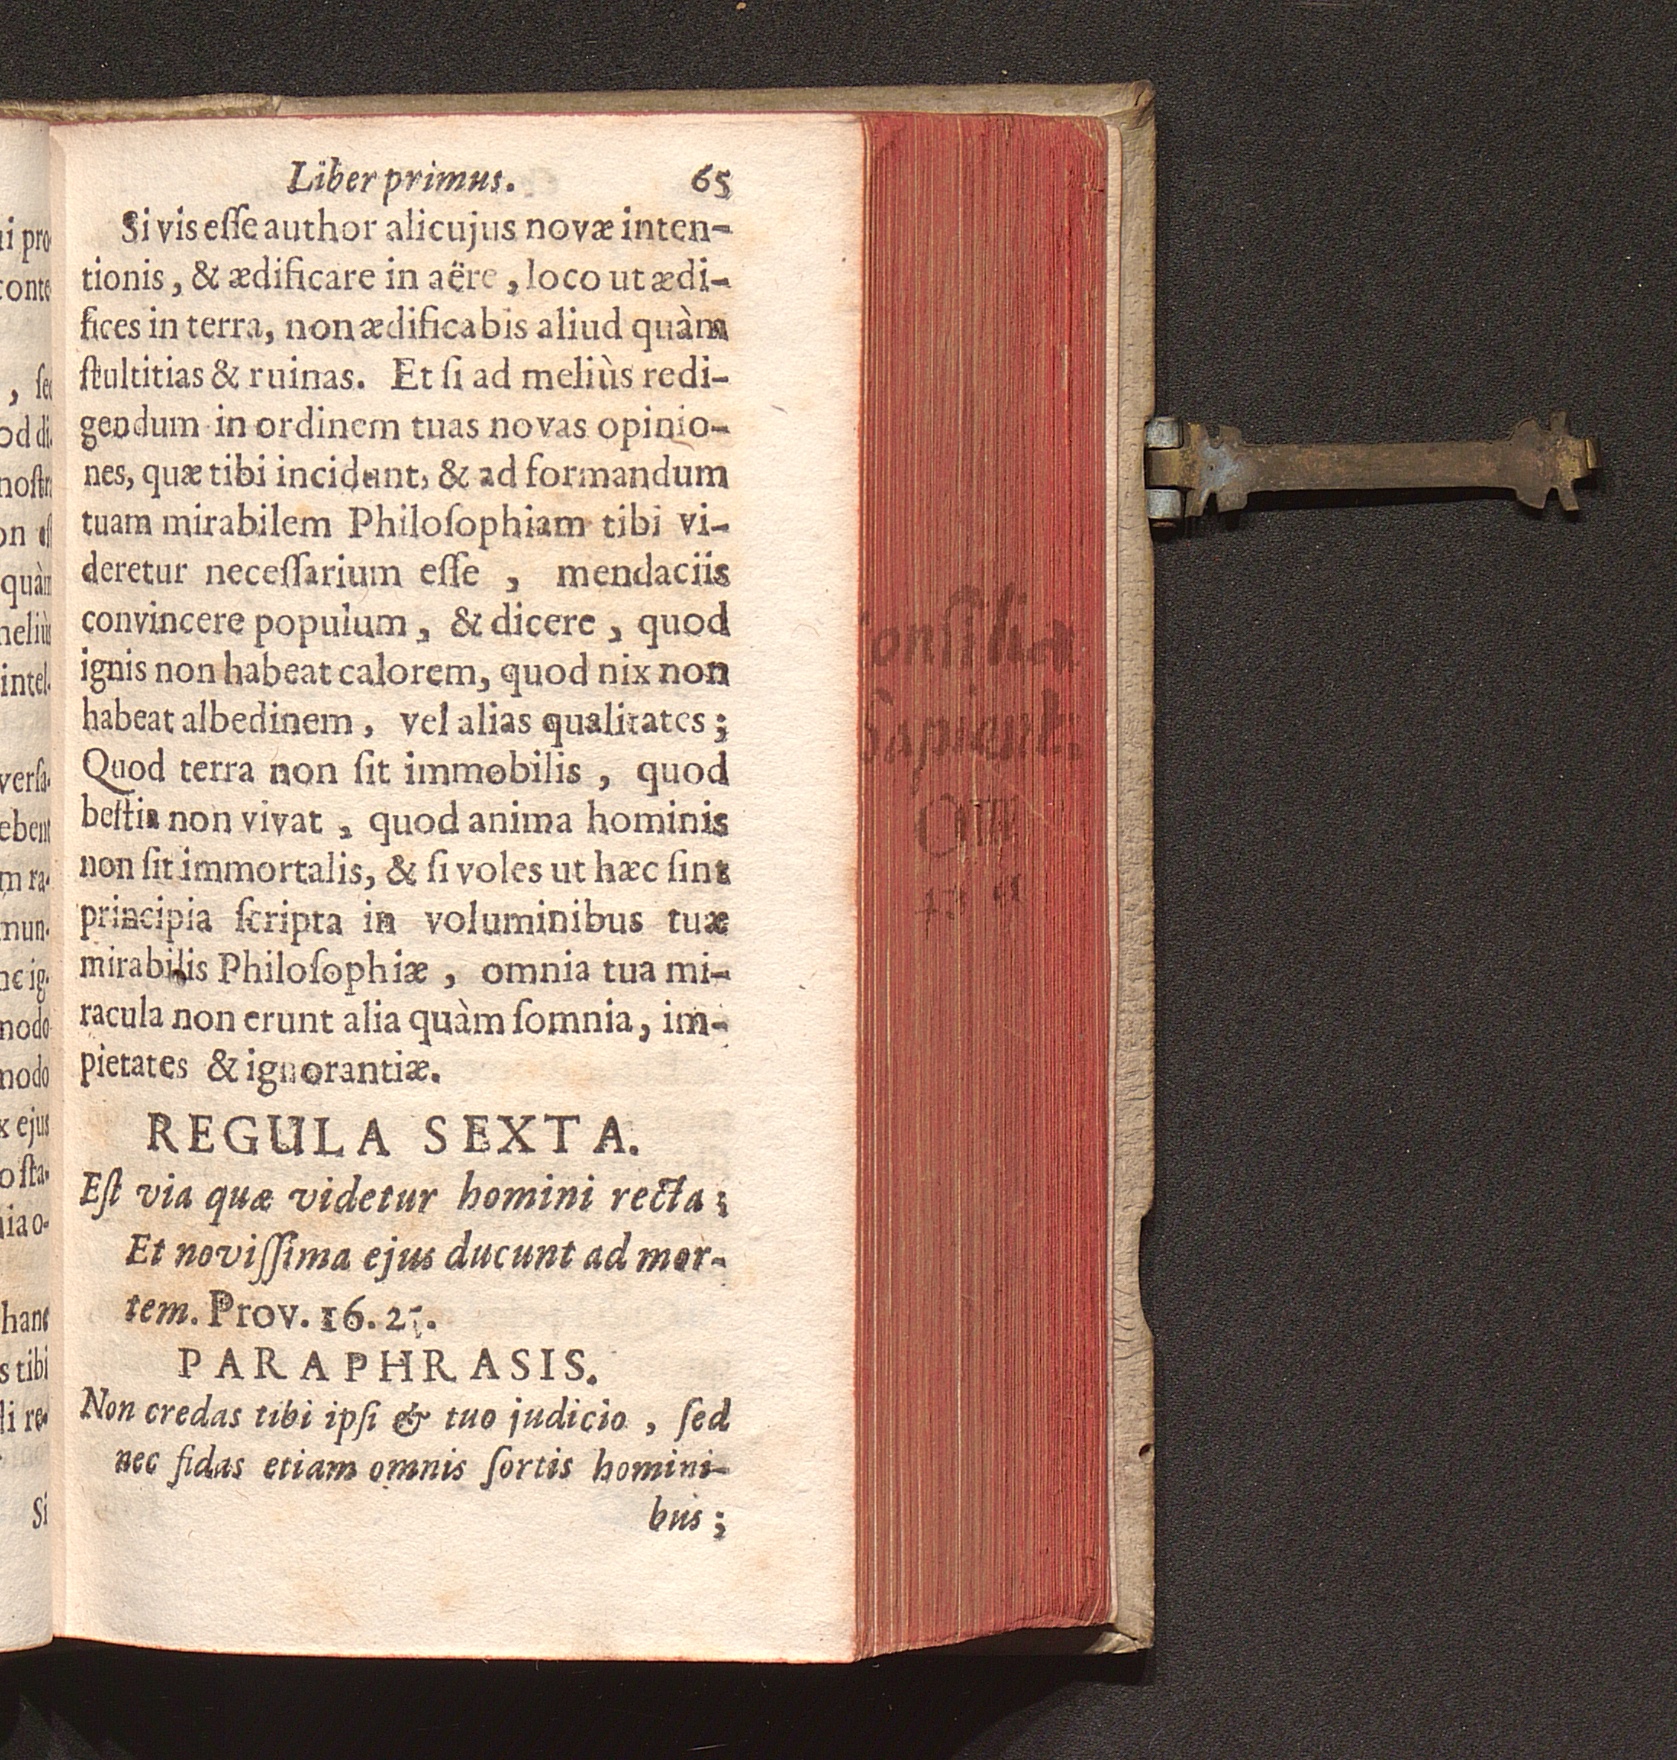 Liber primus. 65
Si vis eſſe author alicujus novæ inten-
tionis, & ædificare in aëre, loco ut ædi-
fices in terra, non ædificabis aliud quàm
ſtultitias & ruinas. Et ſi ad meliùs redi-
gendum in ordinem tuas novas opinio-
nes, quæ tibi incidunt, & ad formandum
tuam mirabilem Philoſophiam tibi vi-
deretur neceſſarium eſſe, mendaciis
convincere populum, & dicere, quod
ignis non habeat calorem, quod nix non
habeat albedinem, vel alias qualitates;
Quod terra non ſit immobilis, quod
beſtia non vivat, quod anima hominis
non ſit immortalis, & ſi voles ut hæc ſint
principia ſcripta in voluminibus tuæ
mirabilis Philoſophiæ, omnia tua mi-
racula non erunt alia quàm ſomnia, im-
pietates & ignorantiæ.
REGULA SEXTA.
Eſt via quæ videtur homini recta;
Et noviſſima ejus ducunt ad mor-
tem. Prov. 16.
PARAPHRASIS.
Non credas tibi ipſi & tuo judicio, ſed
nec fidas etiam omnis ſortis homini-
bus;
onſilia
Sapient.